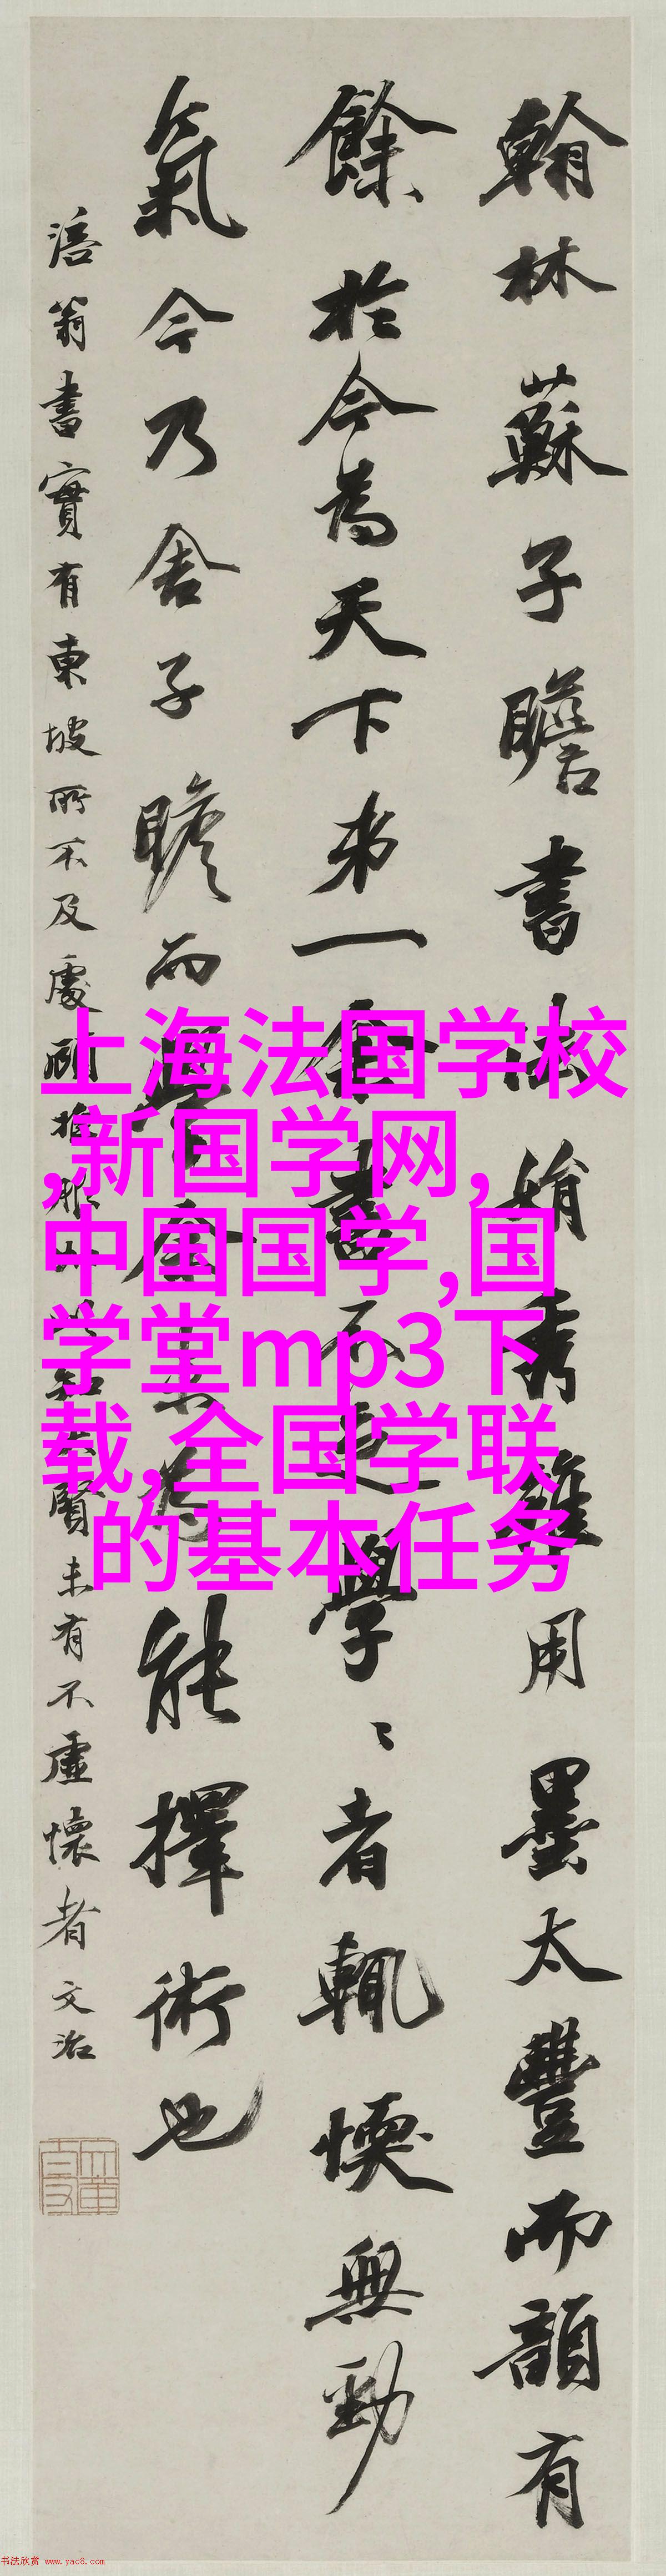 翰林蘇子瞻書法娟秀雖用墨太豐而韻有
餘於今為天下弟一余書不足學〻者輒愞無勁
氣今乃舍子瞻而學余未為能擇術也
涪翁書實有東坡所不及處顧推服如此知賢未有不虛懷者文治
上海法国学校
,新国学网,
中国国学,国
学堂mp3下
载,全国学联
的基本任务
书法欣赏 www.yac8.com